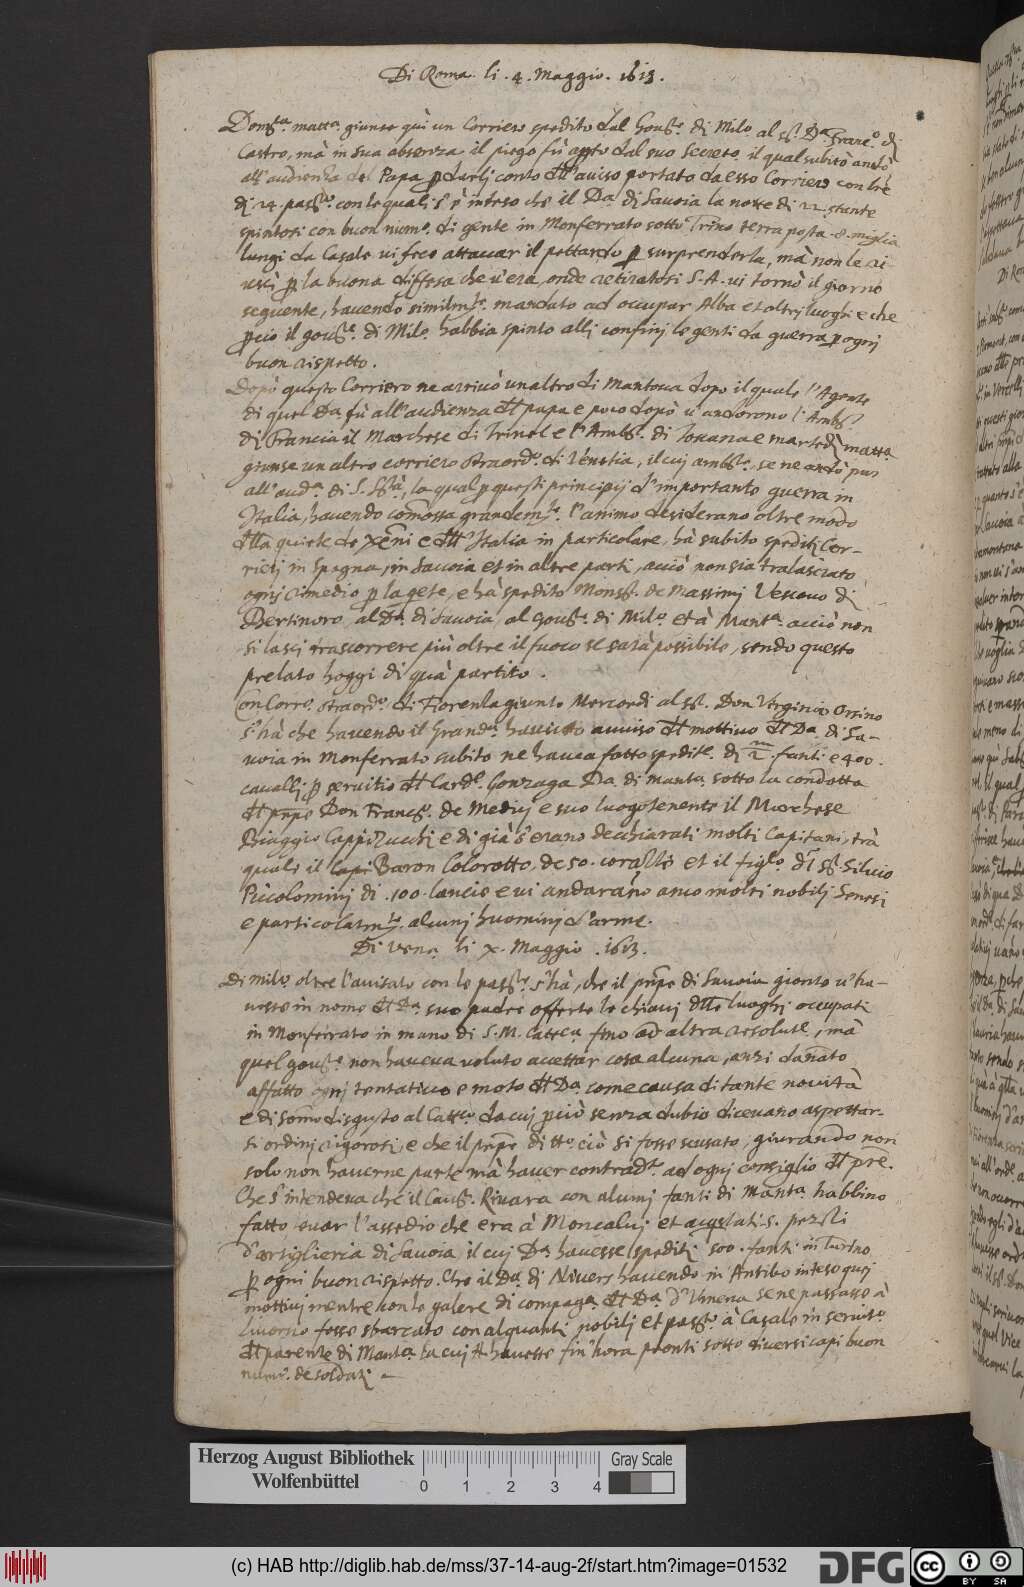 Di Roma li . 4 . Maggio . 1613 .
Domca. matta. giunse quì un Corriero spedito dal Goure. di Milo. al sr. Da. Franco. di
Castro, mà in sua absenza il piego fù apto dal suo Secreto. il qual subito andò
all'audienza del Papa p darli conto dll'auiso portato da esso Corriero con lre
di 24 passte. con le quali s'è inteso che il Da. di Sauoia la notte di 22 stante
spintosi con buon numo. di gente in Monferrato sotto Trino terra posta 8. miglia
lungi da Casale ui fece attaccar il pettardo p surprenderla, mà non le ri-
uscì p la buona diffesa che u'era, onde retiratosi S. A. ui tornò il giorno
seguente, hauendo similmte. mandato ad occupar Alba et altrj luoghi e che
pciò il goure. di Milo. habbia spinto allj confinj le genti da guerra p ognj
buon rispetto .
Dopò questo Corriero ne arriuò un altro di Mantoua dopo il quale l'Agente
di quel Da. fù all'audienza dll papa e poco dopò u'andorono l'Ambr.
di Francia il Marchese di Trinel e l'Ambr. di Toscana e martedj matta.
giunse un altro corriero straordo. di Venetia, il cuj ambre. se ne andò pur
all'auda. di S. Sta., la qual p questi principij d'importante guerra in
Italia, hauendo comossa grandemte. l'animo desiderano oltre modo
dlla quiete de Xpeni e dll'Italia in particolare, hà subito spediti Cor-
rierj in Spagna, in Sauoia et in altre parti, acciò non sia tralasciato
ognj rimedio p la qete, e hà spedito Monsr. de Massimj Vescouo di
Bertinoro, al Da. di Sauoia, al Goure. di Milo. et à Manta. acciò non
si lascj trascorrere più oltre il fuoco se sarà possibile, sendo questo
prelato hoggi di quà partito .
Con Corro. straordo. di Fiorenza giunto Mercordi al sr. Don Verginio Orsino
s'hà che hauendo il Grandа. hauuto auuiso dll mottiuo dll Da. di Sa-
uoia in Monferrato subito ne hauea fatto spedite. di 2 m. fanti e 400.
cauallj p seruitio dll Cardl. Gonzaga Da. di manta. sotto la condotta
dll pnpe Don Francо. de Medicj e suo luogotenente il Marchese
Biaggio Cappizucchj e di già s'erano dechiarati molti Capitani, trà
quali il Baron Colorotto, de 50. corazze et il figlo. dl sr. Siluio
Piccolominj di .100. lancie e ui andarano anco molti nobilj Senesj
e particolarmte. alcunj huominj d'arme.
Di Vena. li X. Maggio . 1613.
Di milo. oltre l'auisato con le passte. s'hà, che il pnpe di Sauoia gionto u'ha-
uesse in nome dll Da. suo padre offerto le chiauj dlle luoghj occupati
in Monferrato in mano di S. M. Cattca. fino ad altra resolute., mà
quel goure. non haueua uoluto accettar cosa alcuna, anzi danato
affatto ognj tentatiuo e moto dll Da. come causa di tante nouità
e di somo disgusto al Cattco. da cuj pciò senza dubio diceuano aspettar-
si ordinj rigorosi, e che il pnpe di tto. ciò si fosse scusato, giurando non
solo non hauerne parte mà hauer contradto. ad ognj consiglio dll pre.
Che s'intendeua che il Caur. Riuara con alcunj fanti di Manta. habbino
fatto leuar l'assedio che era à Moncaluj et acqstati .5. pezzi
d'artiglieria di Sauoia il cuj Da. hauesse speditj 500. fanti in Turino
p ogni buon rispetto. Che il Da. di Niuers hauendo in Antibo inteso quej
mottiuj mentre con le galere di compaga. dll Da. d'Vmena se ne passasse à
Liuorno fosse sbarcato con alquanti nobilj et passto. à Casale in seruito.
dll parente di Manta. la cuj A. hauesse fin'hora pronti sotto diuersi capi buon
numo. de soldati –
Herzog August Bibliothek
Wolfenbüttel
0 1 2 3 4
Gray Scale
(c) HAB http://diglib.hab.de/mss/37-14-aug-2f/start.htm?image=01532
DFG
cc BY SA